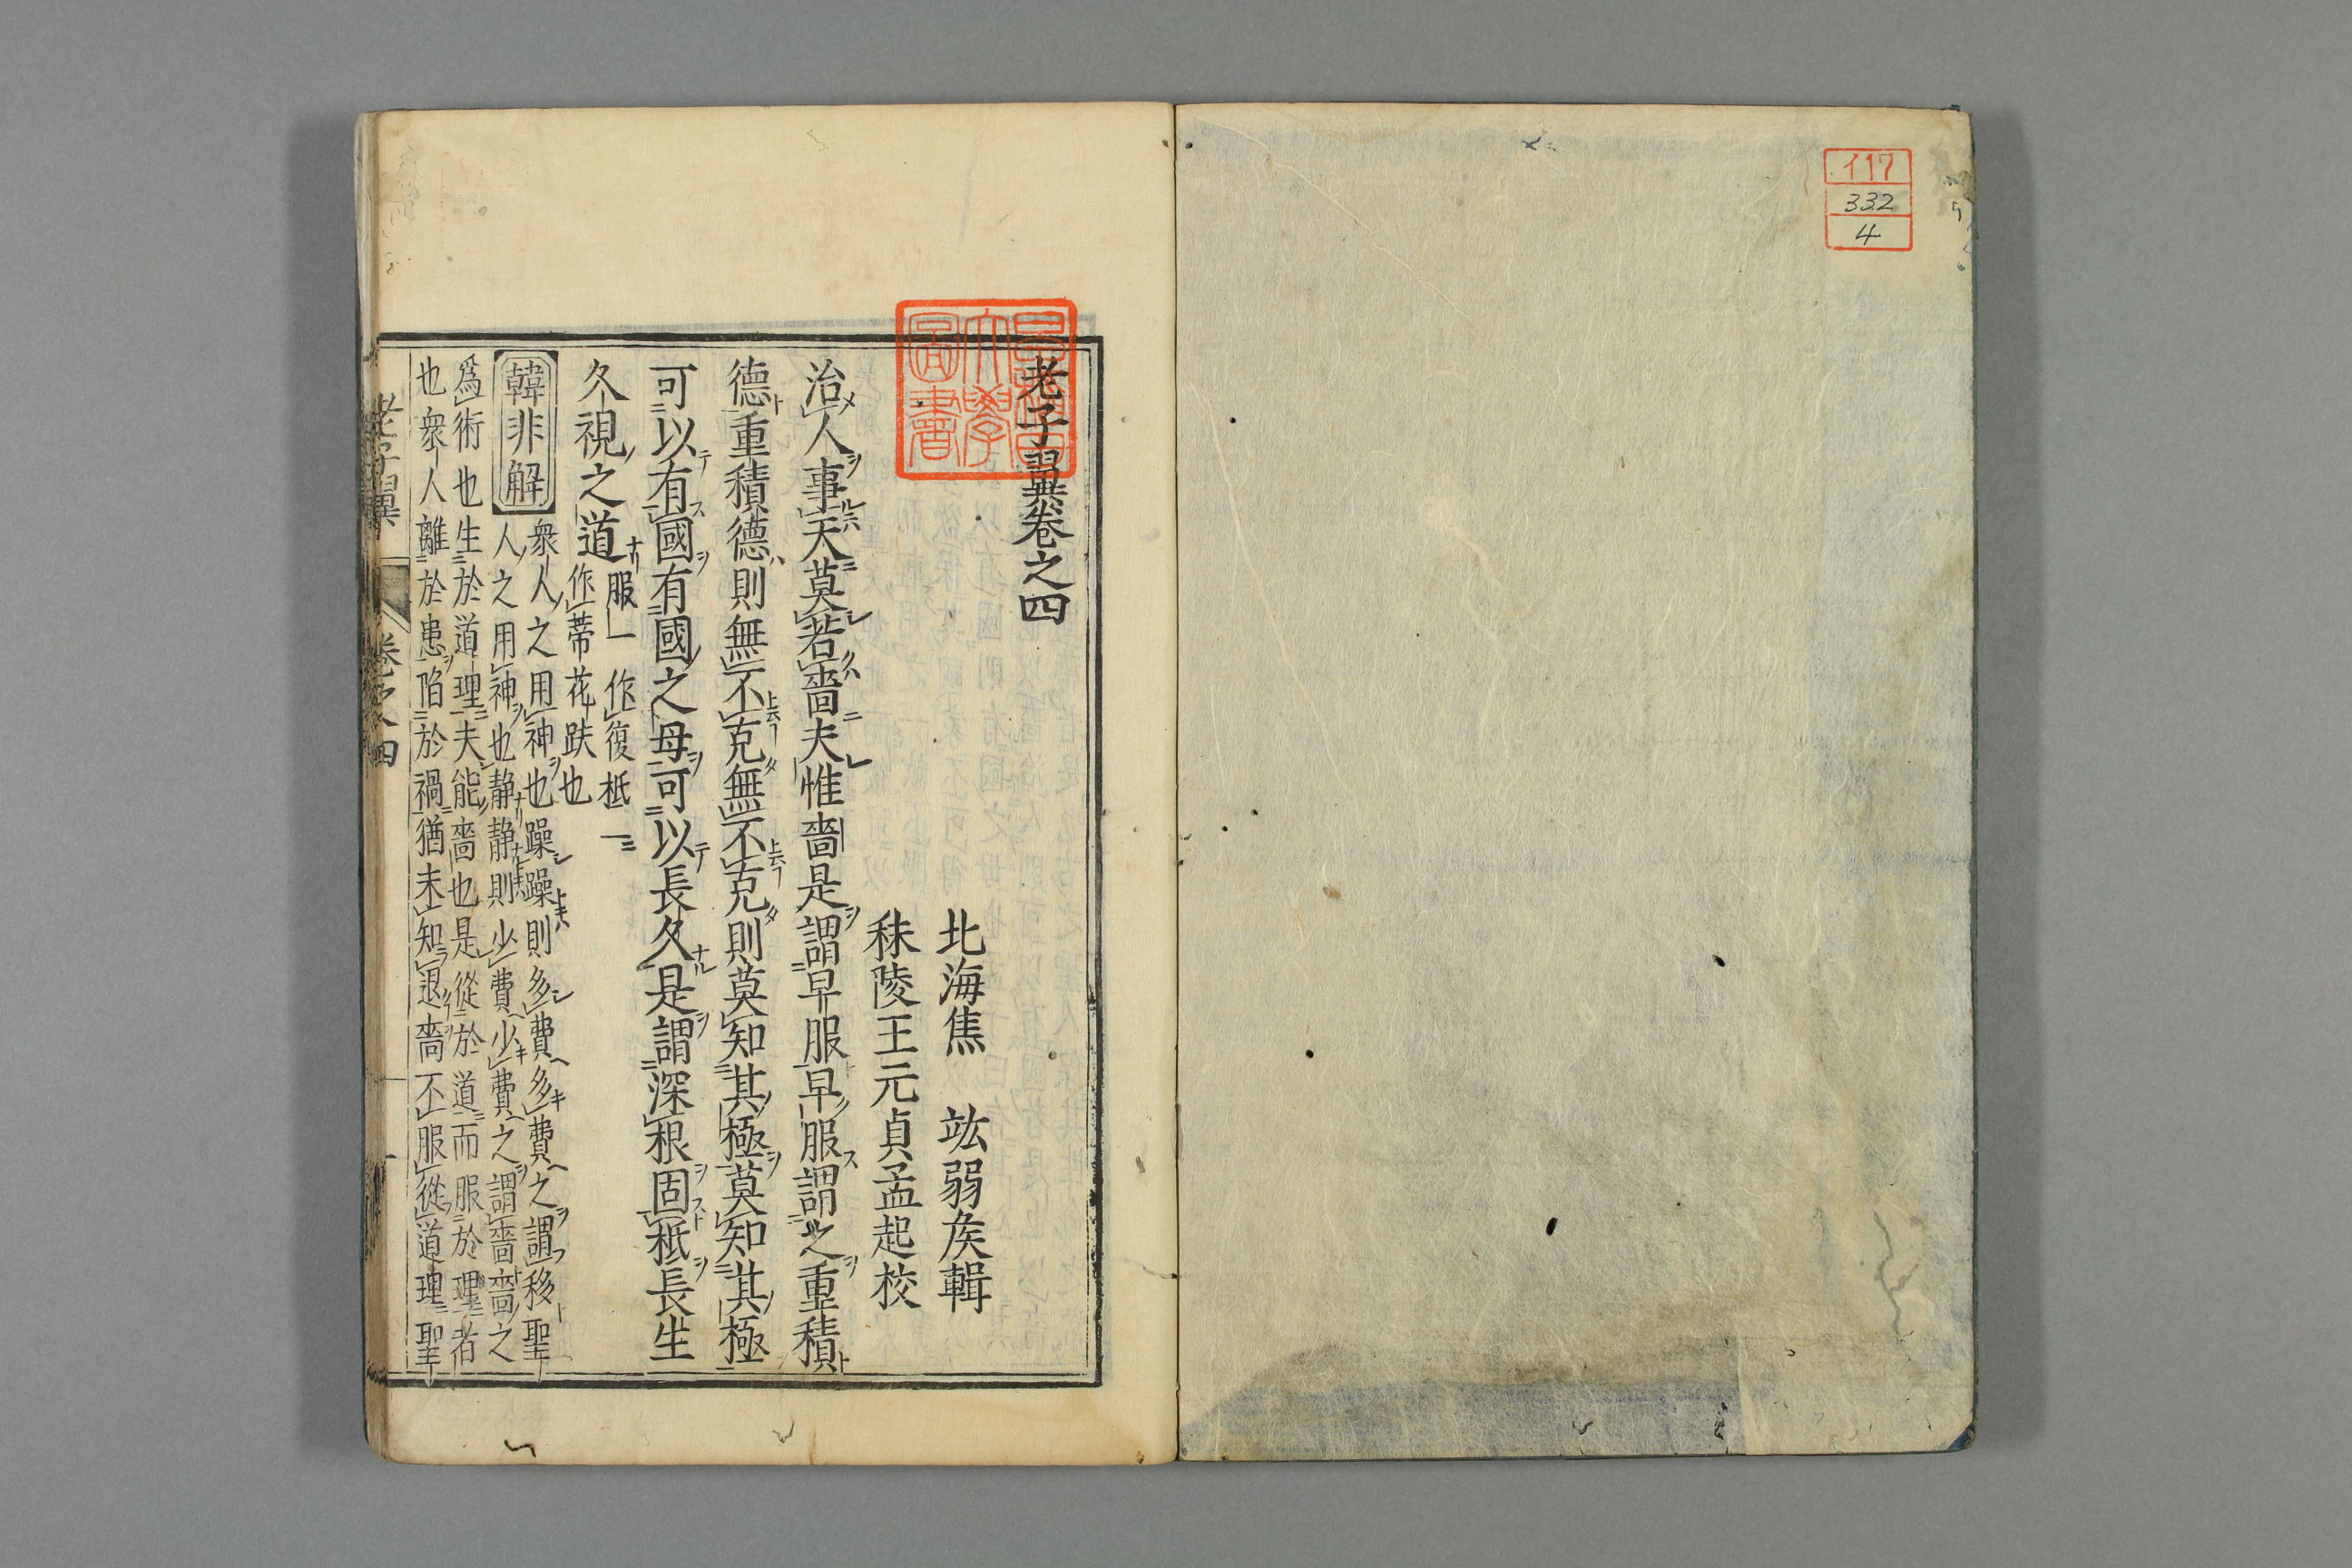 117
332
4
老子翼卷之四
北海焦　竑弱侯輯
秣陵王元貞孟起校
治人事天莫若嗇夫惟嗇是謂早服早服謂之重積
德重積德則無不克無不克則莫知其極莫知其極
可以有國有國之母可以長久是謂深根固柢長生
久視之道
服一作復柢一
作蒂花趺也
韓非解
衆人之用神也躁躁則多費多費之謂移聖
人之用神也静静則少費少費之謂嗇嗇之
爲術也生於道理夫能嗇也是從於道而服於理者
也衆人離於患陷於禍猶未知退嗇不服從道理聖
老子翼
卷之四